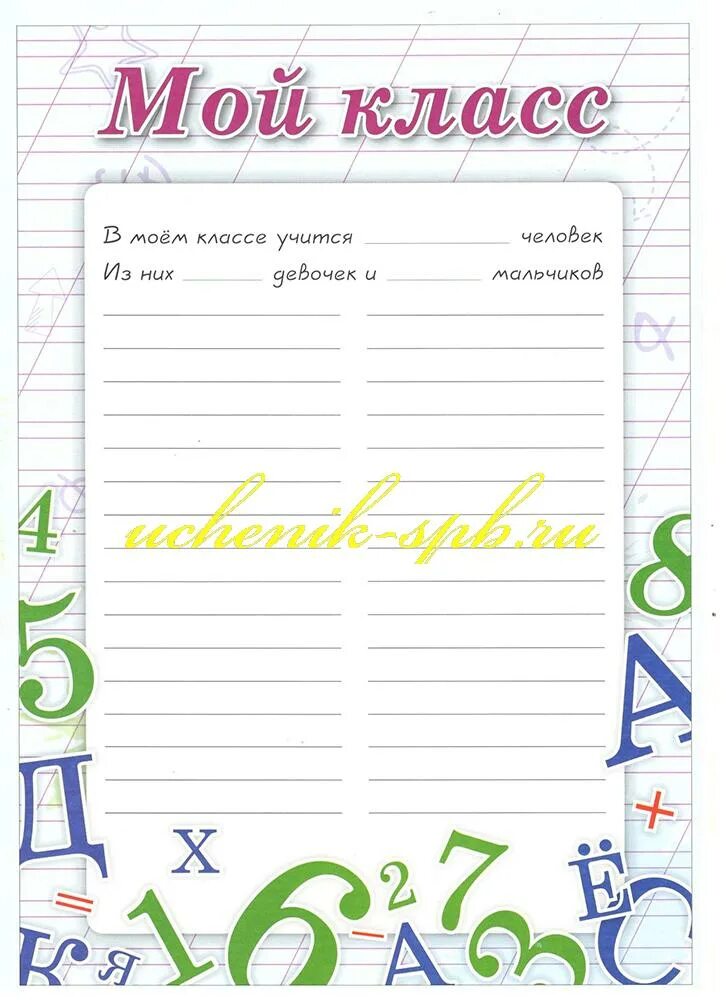 Мой класс
В моём классе учится ________ человек
Из них ________ девочек и ________ мальчиков
uchenik-spb.ru
4
8
5
А
Д
+
Х
7
Ё
2
=
1
6
-
А
3
С
К
Я